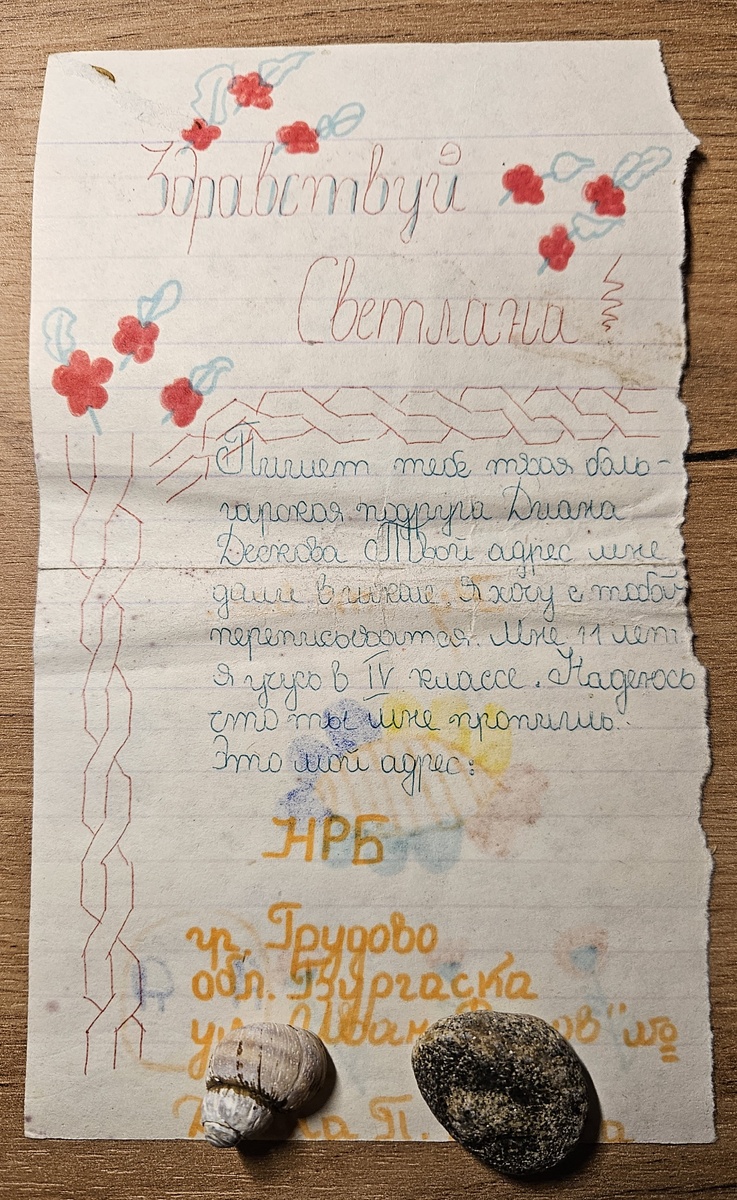 Здравствуй
Светлана
Пишет тебе твоя боль-
гарская подруга Диана
Дескова Твой адрес мне
дали в школе. Я хочу с тобой
переписоватся. Мне 11 лет.
Я учусь в IV классе. Надеюсь
что ты мне пропишь.
Это мой адрес:
НРБ
гр. Грудово
обл. Бургаска
ул. "Иван №
П.